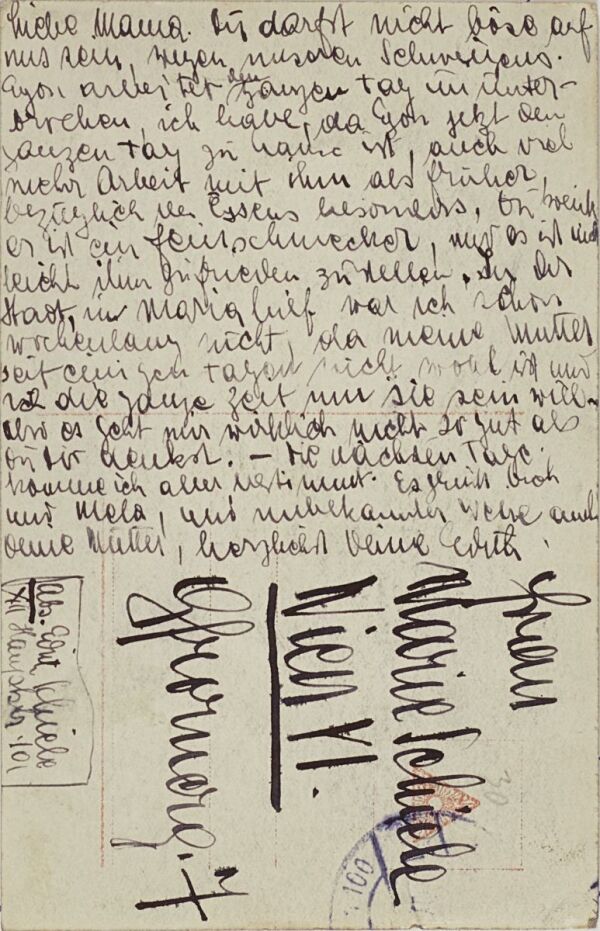 Liebe Mama. Du darfst nicht böse auf
uns sein, wegen unseren Schweigens.
Egon arbeitet den ganzen Tag ununter-
brochen, ich habe, da Egon jetzt den
ganzen Tag zu hause ist, auch viel
mehr Arbeit mit ihm als früher,
bezüglich des Essens besonders, Du weißt
er ist ein feinschmecker, und es ist nicht
leicht ihn zufrieden zu stellen. In der
Stadt, in Mariahilf war ich schon
wochenlang nicht, da meine Mutter
seit einigen Tagen nicht wohl ist und
ich die ganze Zeit um sie sein will
also es geht mir wirklich nicht so gut als
Du Dir denkst. – Die nächsten Tage
komme ich aber bestimmt. Es grüßt Dich
und Mela, und unbekannter Weise auch
Deine Mutter, herzlichst Deine Edith.
Frau
Marie Schiele
Wien VI.
7
Abs. Edit Schiele
XIII 101
100